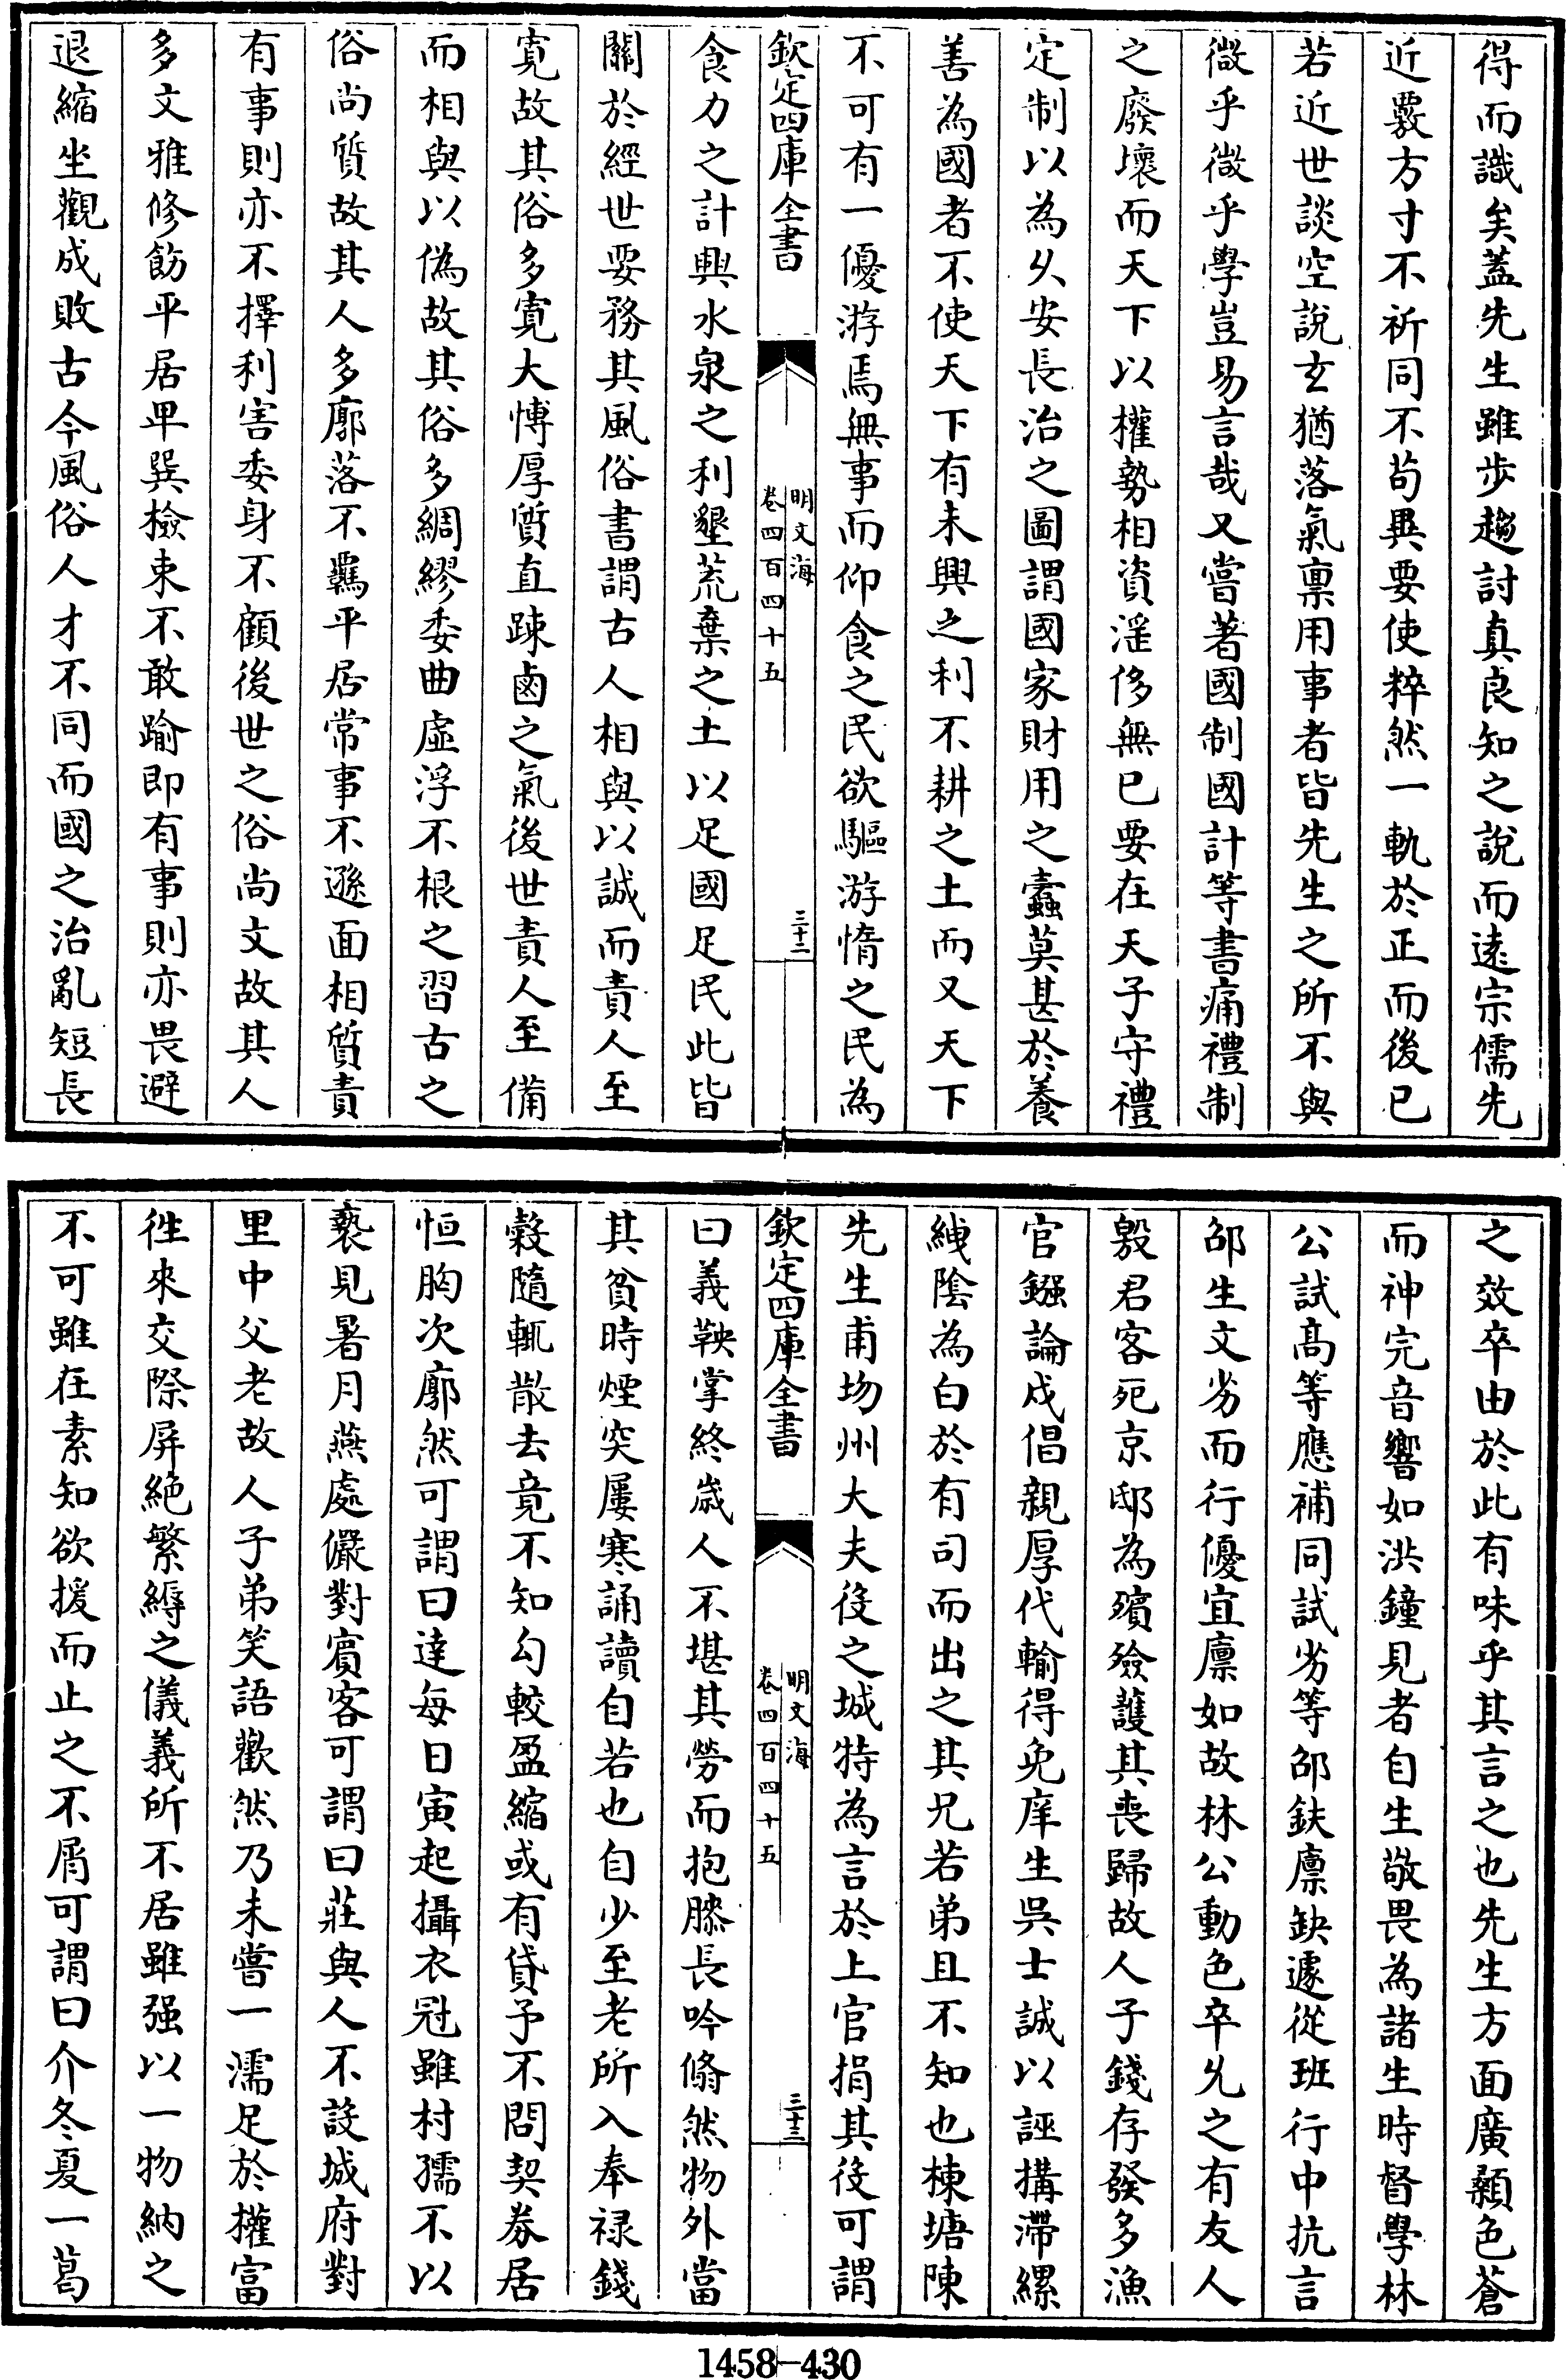 得而識矣蓋先生雖步趨討真良知之說而遠宗儒先
近覈方寸不祈同不茍異要使粹然一軌於正而後已
若近世談空說玄猶落氣稟用事者皆先生之所不與
微乎微乎學豈易言哉又嘗著國制國計等書痛禮制
之廢壞而天下以權勢相資淫侈無已要在天子守禮
定制以為乆安長治之圖謂國家財用之蠹莫甚於養
善為國者不使天下有未興之利不耕之土而又天下
不可有一優游焉無事而仰食之民欲驅游惰之民為
欽定四庫全書
明文海
卷四百四十五
三十二
食力之計興水泉之利墾荒棄之土以足國足民此皆
關於經世要務其風俗書謂古人相與以誠而責人至
寛故其俗多寛大愽厚質直踈鹵之氣後世責人至備
而相與以偽故其俗多綢繆委曲虛浮不根之習古之
俗尚質故其人多廓落不羈平居常事不遜面相質責
有事則亦不擇利害委身不顧後世之俗尚文故其人
多文雅修飭平居卑巽檢束不敢踰即有事則亦畏避
退縮坐觀成敗古今風俗人才不同而國之治亂短長
之效卒由於此有味乎其言之也先生方面廣顙色蒼
而神完音響如洪鐘見者自生敬畏為諸生時督學林
公試髙等應補同試劣等邵鈇廪缺遽從班行中抗言
邵生文劣而行優宜廪如故林公動色卒允之有友人
殷君客死京邸為殯殮護其喪歸故人子錢存發多漁
官鏹論戍倡親厚代輸得免庠生吳士誠以誣搆滯縲
絏陰為白於有司而出之其兄若弟且不知也棟塘陳
先生甫均州大夫役之城特為言於上官捐其役可謂
欽定四庫全書
明文海
卷四百四十五
三十三
曰義鞅掌終嵗人不堪其勞而抱膝長吟翛然物外當
其貧時煙突屢寒誦讀自若也自少至老所入奉祿錢
穀隨輒散去竟不知勾較盈縮或有貸予不問契券居
恒胸次廓然可謂曰達每日寅起攝衣冠雖村孺不以
褻見暑月燕處儼對賓客可謂曰莊與人不設城府對
里中父老故人子弟笑語歡然乃未嘗一濡足於權富
徃來交際屏絶繁縟之儀義所不居雖强以一物納之
不可雖在素知欲援而止之不屑可謂曰介冬夏一葛
1458-430